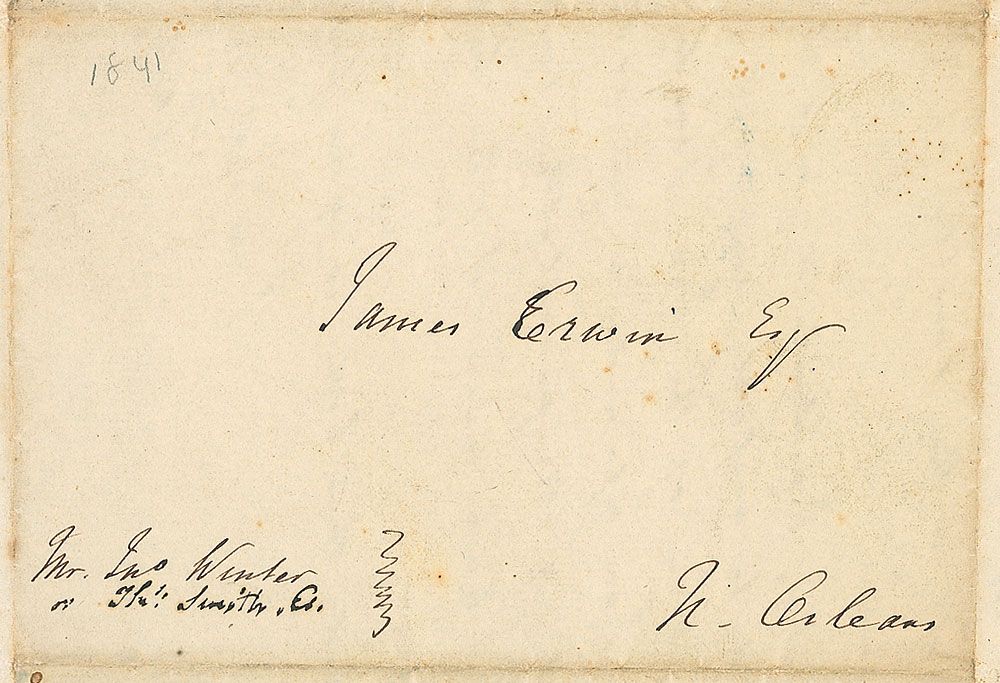 1841
James Erwin Esq
Mr. Jno Winter
or Smith, Co.
N. Orleans